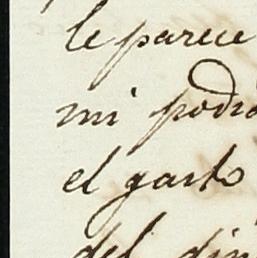 le parece
mi podra
el gasto
del din